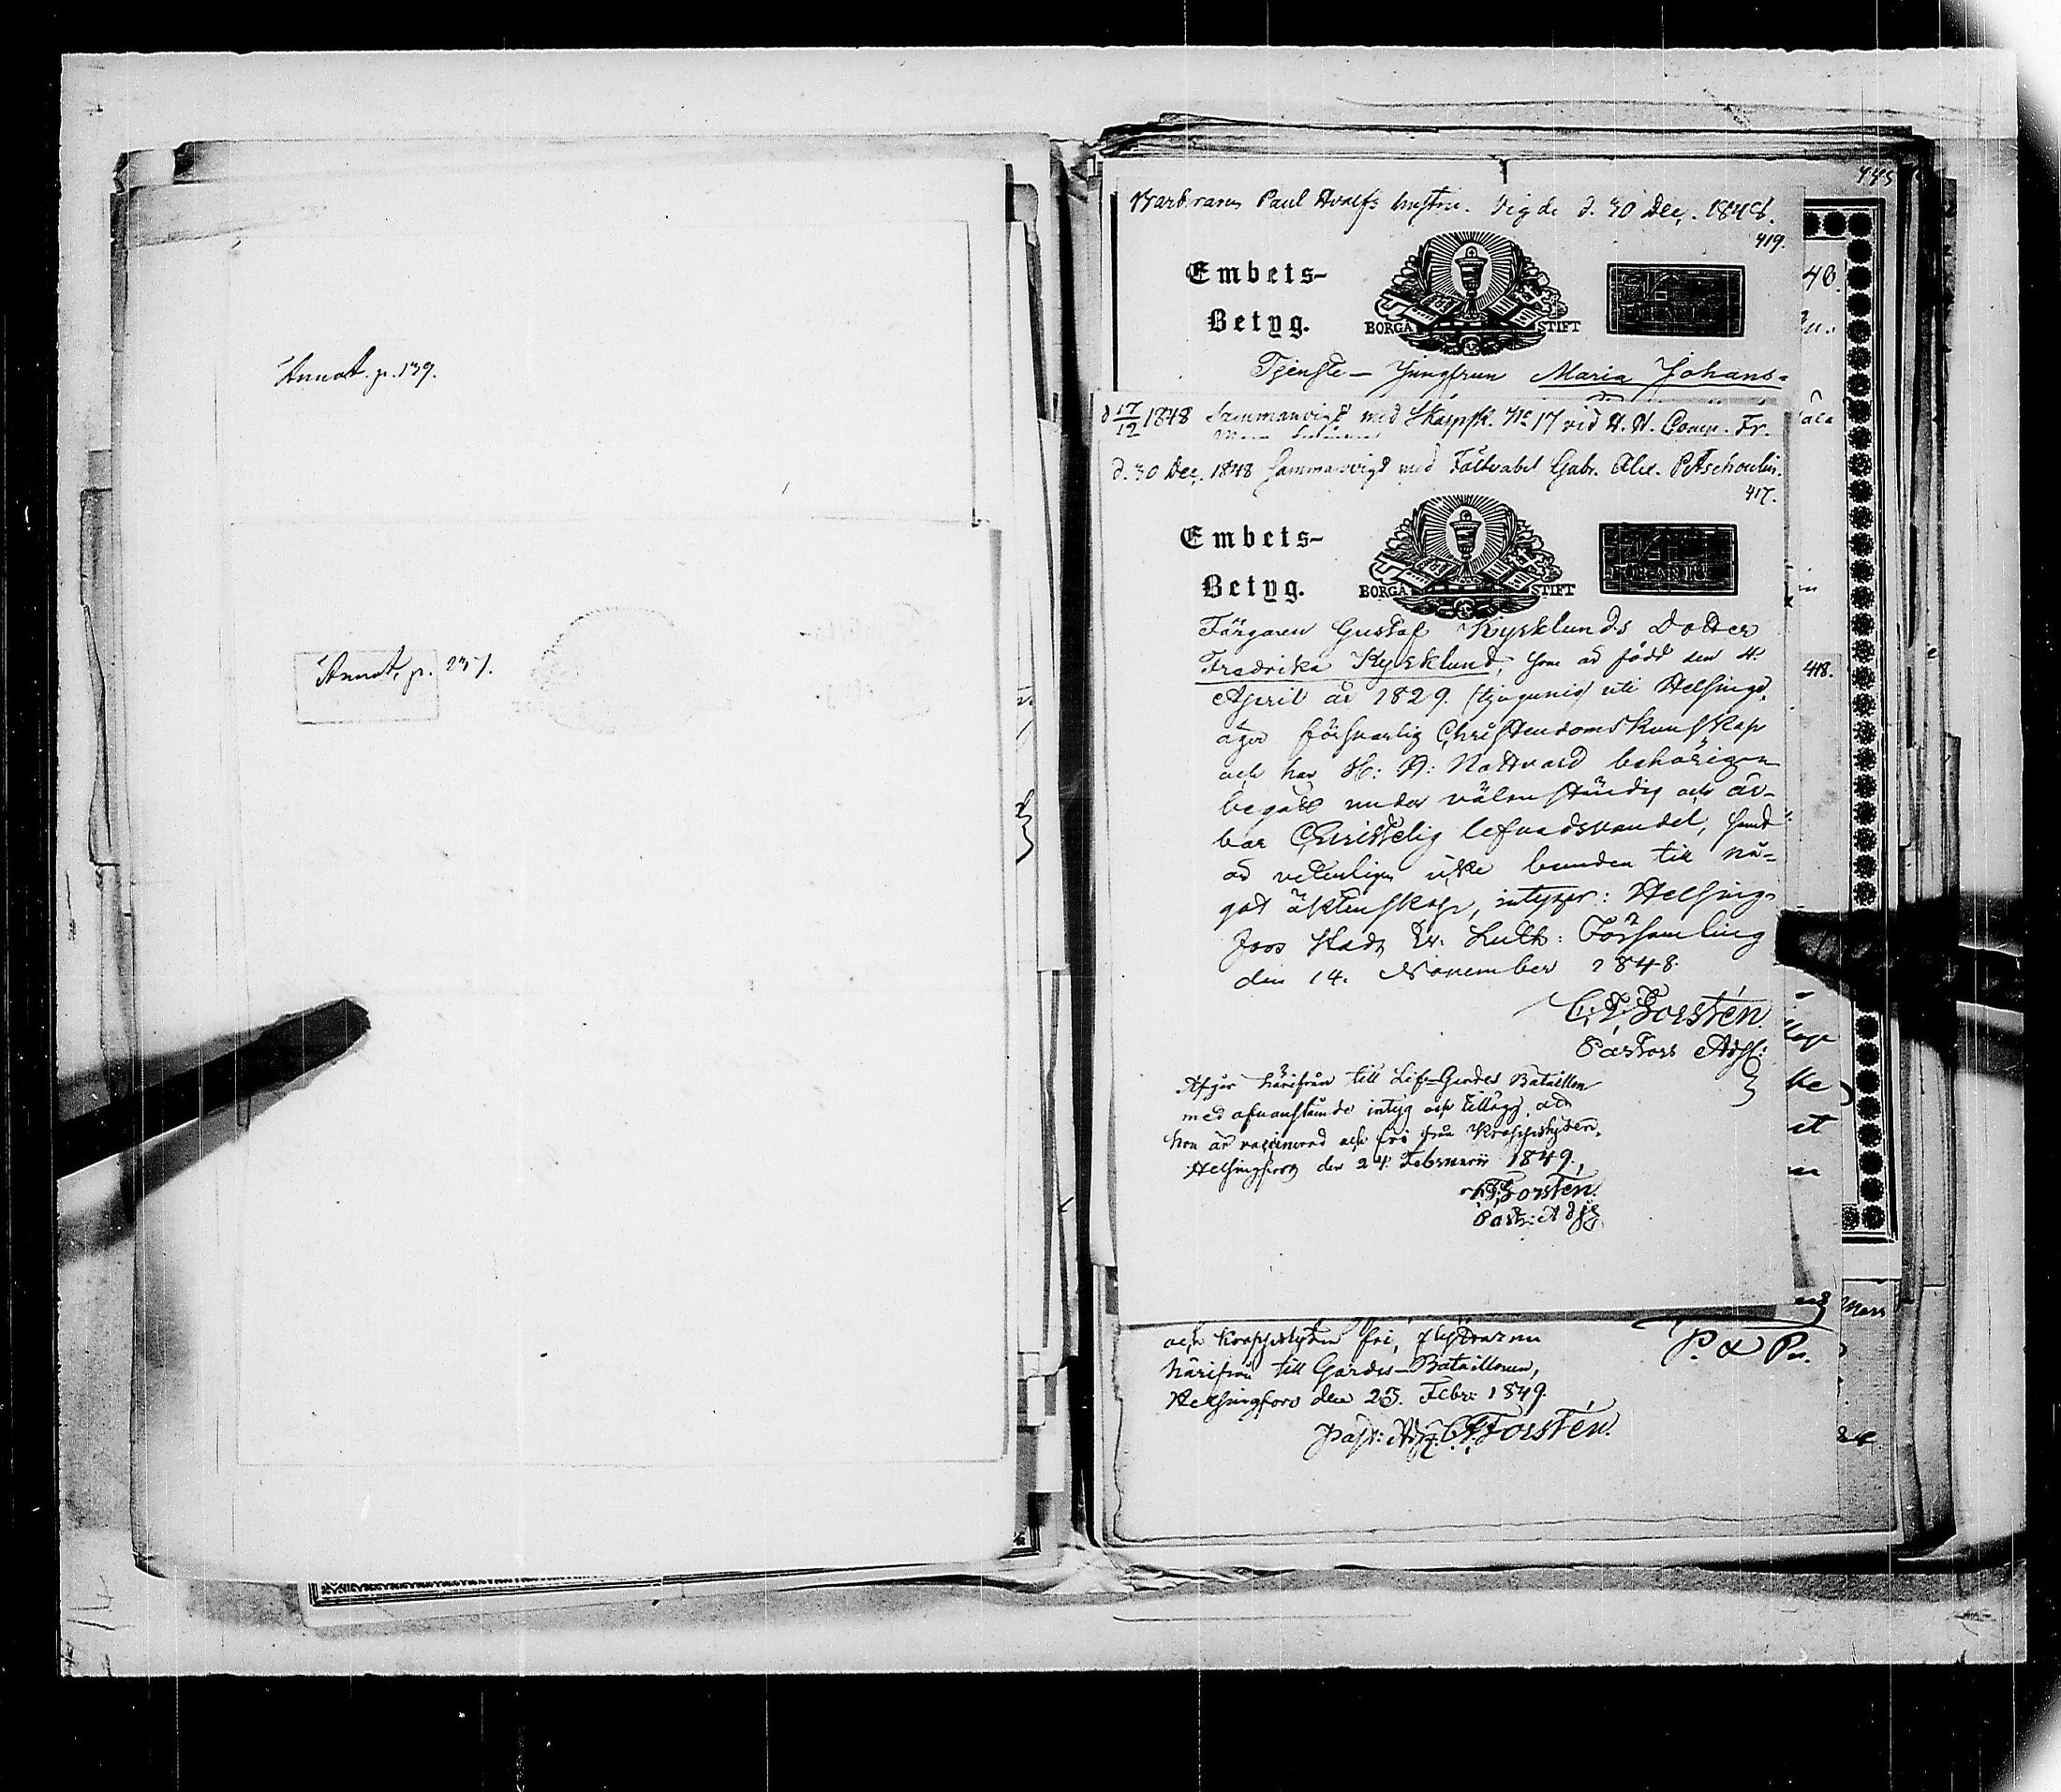 Annot. p. 139.
Annot. p. 237.
445
Paul Adolfs hustru. Vigde d. 30 Dec. 1848.
419.
Embets-
Betyg.
BORGÅ STIFT
Tjenste-Jungfrun Maria Johans-
40.
d 17/12 1848 Sammanvigd med Skarpsk. No 17 vid Comp. Fr.
d. 30 Dec. 1848 Sammanvigd med Fältväbel Gabr. Alex. Petschoulin.
417.
Embets-
Betyg.
BORGÅ STIFT
Färgaren Gustaf Kyrklunds Dotter
Fredrika Kyrklund, som är född den 4.
April år 1829. (tjugunio) uti Helsingf.
äger försvarlig Christendomskunskap
och har H: H: Nattvard behörigen
begått under välanständig och är-
bar Christelig lefnadsvandel, samt
är veterligen icke bunden till nå-
got äktenskap, intygar: Helsing-
fors Stads Ev: Luth: Församling
den 14. November 1848.
C. F. Forstén.
Pastors Adj:
418.
Afgår härifrån till Lif-Gardes Bataillon
med ofvanstående intyg och tillägg, att
hon är vaccinerad och fri från Koppskyden.
Helsingfors den 24. Februarii 1849,
Forstén.
Past: Adj:
och koppskyden fri, flyttar nu
härifrån till Gardes-Bataillonen,
Helsingfors den 23. Febr: 1849.
Past: Adj. C. F. Forstén.
P. & Pr.